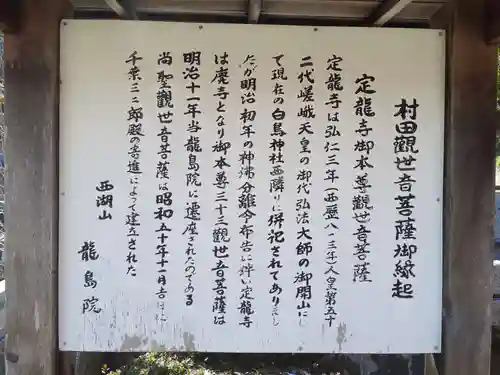 村田觀世音菩薩御縁起
定龍寺御本尊觀世音菩薩
定龍寺は弘仁三年(西暦八一三年)人皇第五十
二代嵯峨天皇の御代弘法大師の御開山にし
て現在の白鳥神社西隣りに併祀されてありまし
たが明治初年の神沸分離令布告に伴い定龍寺
は廃寺となり御本尊三十三觀世音菩薩は
明治十一年当龍島院に遷座されたのである
尚聖觀世音菩薩は昭和五十年十一月吉日に
千葉三二郎殿の寄進によって建立された
西湖山
龍島院